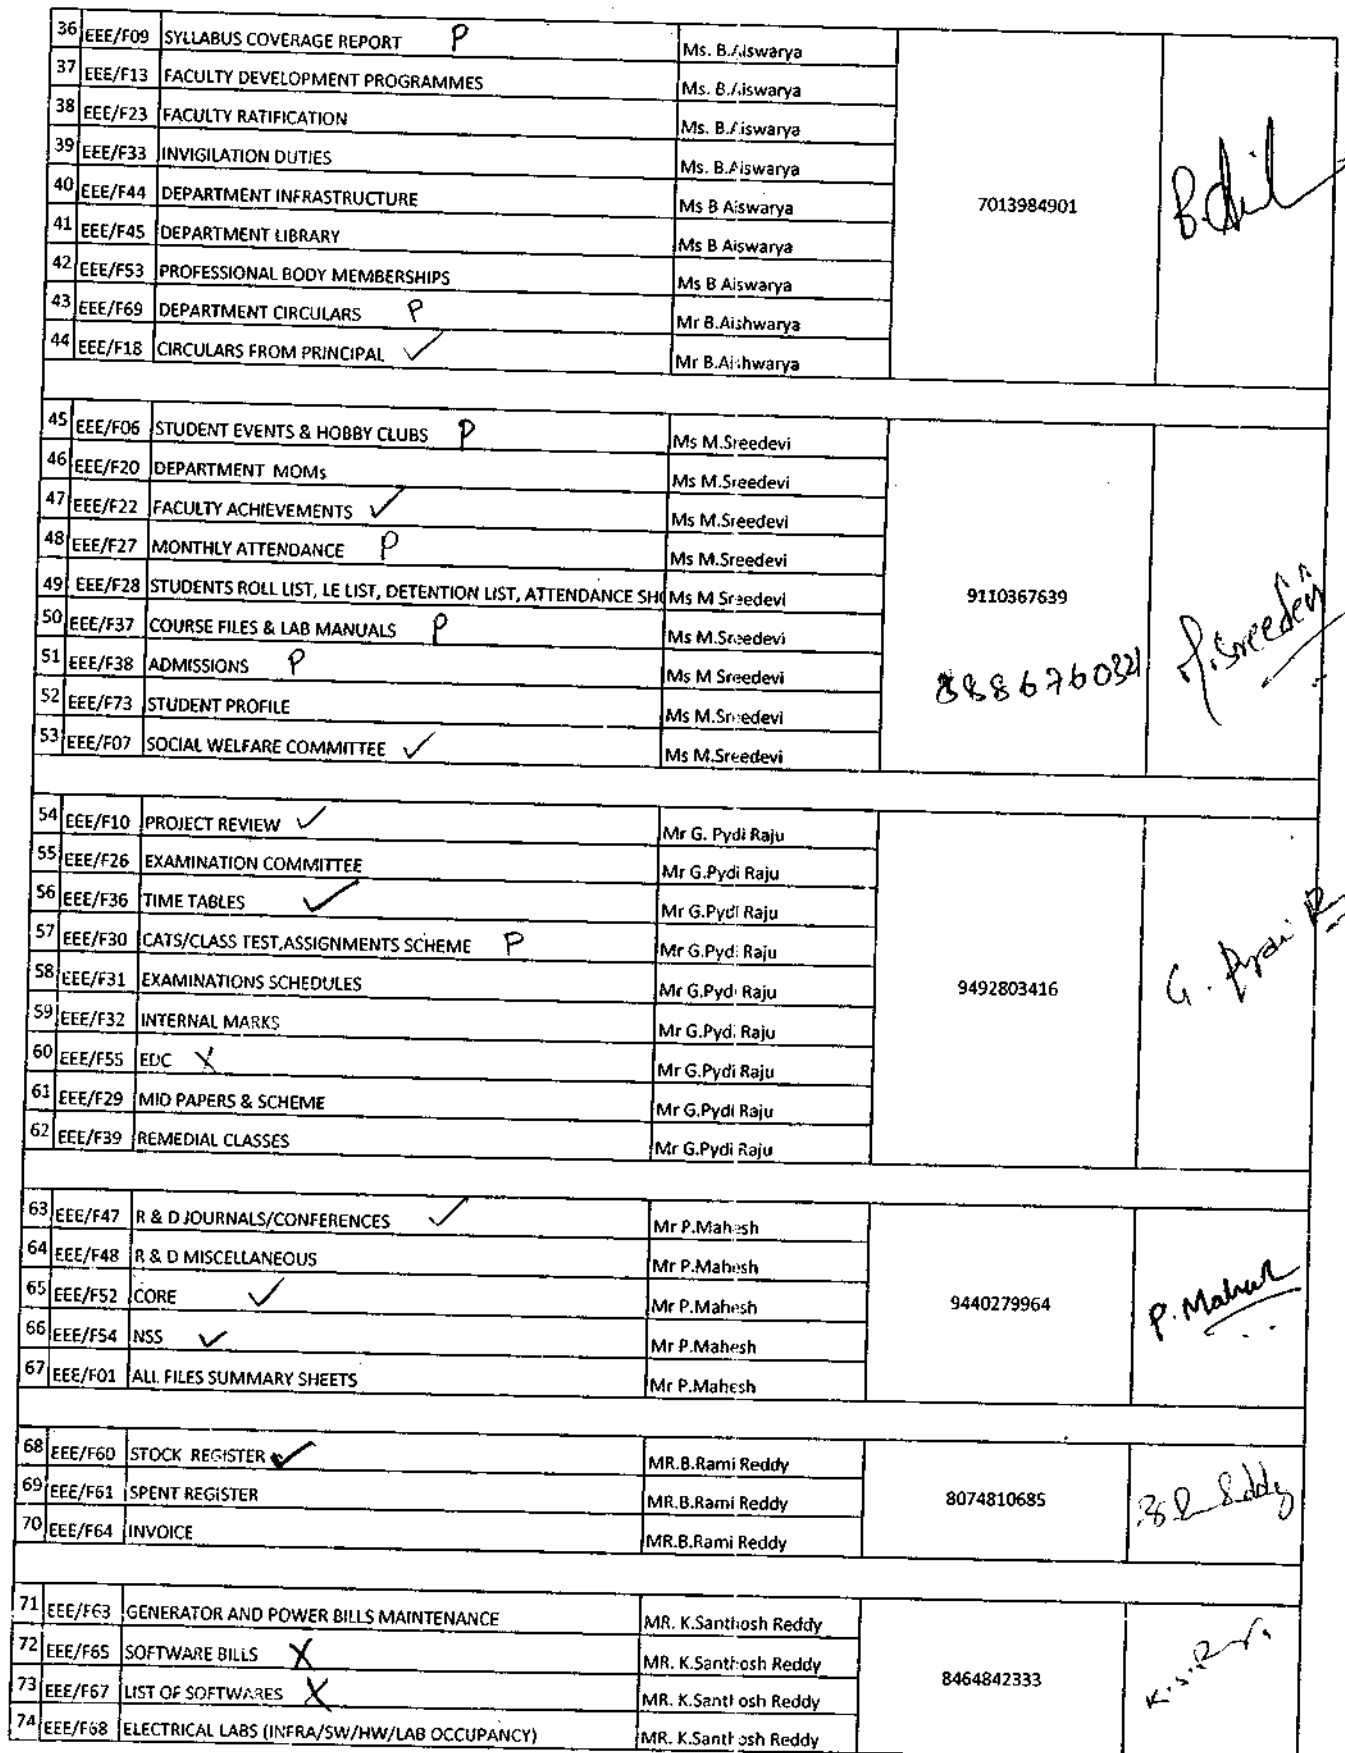 36 EEE/F09 SYLLABUS COVERAGE REPORT P Ms. B.Aiswarya
37 EEE/F13 FACULTY DEVELOPMENT PROGRAMMES Ms. B.Aiswarya
38 EEE/F23 FACULTY RATIFICATION Ms. B.Aiswarya
39 EEE/F33 INVIGILATION DUTIES Ms. B.Aiswarya
40 EEE/F44 DEPARTMENT INFRASTRUCTURE Ms B Aiswarya 7013984901
41 EEE/F45 DEPARTMENT LIBRARY Ms B Aiswarya
42 EEE/F53 PROFESSIONAL BODY MEMBERSHIPS Ms B Aiswarya
43 EEE/F69 DEPARTMENT CIRCULARS P Mr B.Aishwarya
44 EEE/F18 CIRCULARS FROM PRINCIPAL ✓ Mr B.Aishwarya
45 EEE/F06 STUDENT EVENTS & HOBBY CLUBS P Ms M.Sreedevi
46 EEE/F20 DEPARTMENT MOMs Ms M.Sreedevi
47 EEE/F22 FACULTY ACHIEVEMENTS ✓ Ms M.Sreedevi
48 EEE/F27 MONTHLY ATTENDANCE P Ms M.Sreedevi
49 EEE/F28 STUDENTS ROLL LIST, LE LIST, DETENTION LIST, ATTENDANCE SHO Ms M Sreedevi 9110367639
50 EEE/F37 COURSE FILES & LAB MANUALS P Ms M.Sreedevi
51 EEE/F38 ADMISSIONS P Ms M Sreedevi 8886760321 M.Sreedevi
52 EEE/F73 STUDENT PROFILE Ms M.Sreedevi
53 EEE/F07 SOCIAL WELFARE COMMITTEE ✓ Ms M.Sreedevi
54 EEE/F10 PROJECT REVIEW ✓ Mr G. Pydi Raju
55 EEE/F26 EXAMINATION COMMITTEE Mr G.Pydi Raju
56 EEE/F36 TIME TABLES ✓ Mr G.Pydi Raju
57 EEE/F30 CATS/CLASS TEST,ASSIGNMENTS SCHEME P Mr G.Pydi Raju
58 EEE/F31 EXAMINATIONS SCHEDULES Mr G.Pydi Raju 9492803416 G. Pydi R
59 EEE/F32 INTERNAL MARKS Mr G.Pydi Raju
60 EEE/F55 EDC X Mr G.Pydi Raju
61 EEE/F29 MID PAPERS & SCHEME Mr G.Pydi Raju
62 EEE/F39 REMEDIAL CLASSES Mr G.Pydi Raju
63 EEE/F47 R & D JOURNALS/CONFERENCES ✓ Mr P.Mahesh
64 EEE/F48 R & D MISCELLANEOUS Mr P.Mahesh
65 EEE/F52 CORE ✓ Mr P.Mahesh 9440279964 P.Mahesh
66 EEE/F54 NSS ✓ Mr P.Mahesh
67 EEE/F01 ALL FILES SUMMARY SHEETS Mr P.Mahesh
68 EEE/F60 STOCK REGISTER ✓ MR.B.Rami Reddy
69 EEE/F61 SPENT REGISTER MR.B.Rami Reddy 8074810685 Reddy
70 EEE/F64 INVOICE MR.B.Rami Reddy
71 EEE/F63 GENERATOR AND POWER BILLS MAINTENANCE MR. K.Santhosh Reddy
72 EEE/F65 SOFTWARE BILLS X MR. K.Santhosh Reddy
73 EEE/F67 LIST OF SOFTWARES X MR. K.Santhosh Reddy 8464842333
74 EEE/F68 ELECTRICAL LABS (INFRA/SW/HW/LAB OCCUPANCY) MR. K.Santhosh Reddy